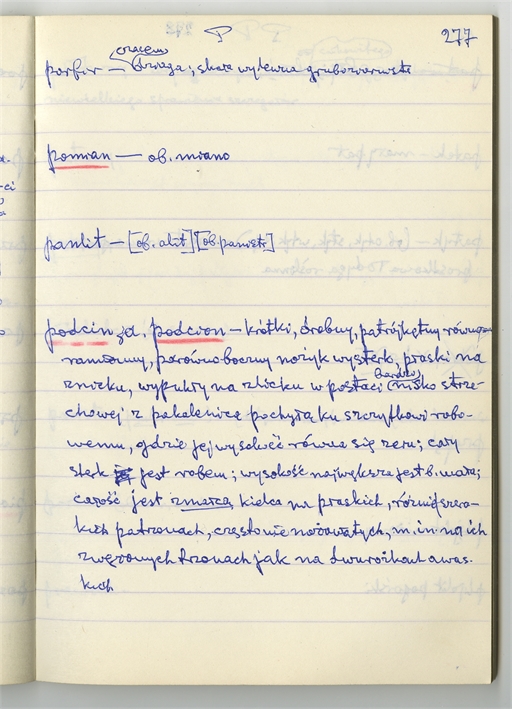 P
277
czasem
porfir — skała wylewna gruboziarnista
pomian — ob. miano
panlit — [ob. alit] [ob. panisty]
podcin zd. podcion — krótki, drobny, patrójkętny równo
ramienny, parównoboczny nożyk wysterk, praski na
zniku, wypukły na zlicku w postaci bardzo nisko strze-
chowej z pochyłą ku szczytkowi robo-
wemu, gdzie jej wysokość równa się zeru; cały
sterk jest robem; wysokość największa jest b. mała;
całość jest kielca na praskich, różniészero-
kich patrzonach, często nie nożowatych, m. in. na ich
zwężonych trzonach jak na dwurożkach awas.
kich